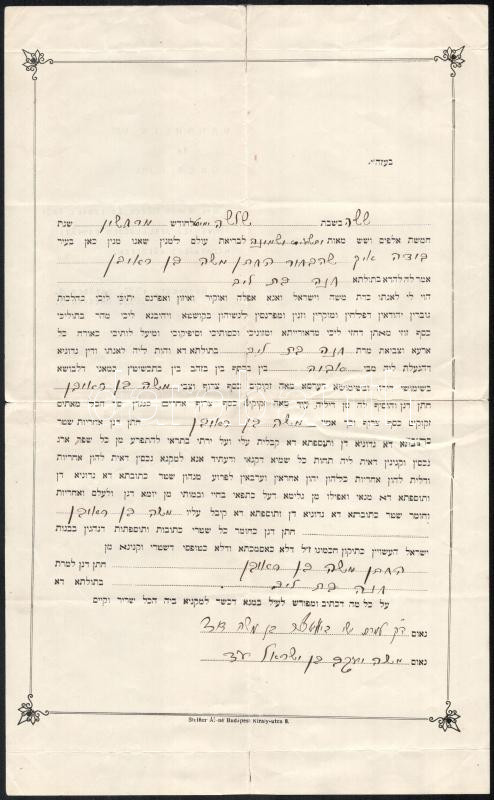 בעזה״י.
ששה בשבת שלשה ימים לחודש מרחשון שנת
חמשת אלפים ושש מאות ושלשים ושמונה לבריאת עולם למנין שאנו מנין כאן בעיר
שהבחור החתן משה בן ראובן
אמר לה להדא בתולתא חנה בת ליב
הוי לי לאנתו כדת משה וישראל ואנא אפלח ואוקיר ואיזון ואפרנס יתיכי ליכי כהלכות
גוברין יהודאין דפלחין ומוקרין וזנין ומפרנסין לנשיהון בקושטא ויהיבנא ליכי מהר בתוליכי
כסף זוזי מאתן דחזי ליכי מדאורייתא ומזוניכי וכסותיכי וסיפוקיכי ומיעל לותיכי כאורח כל
ארעא וצביאת מרת חנה בת ליב בתולתא דא והות ליה לאנתו ודין נדוניא
דהנעלת ליה מבי אבוה בין בכסף בין בזהב בין בתכשיטין במאני דלבושא
בשימושי דירה ובשימושא דערסא מאה זקוקים כסף צרוף וצבי משה בן ראובן
חתן דנן והוסיף לה מן דיליה עוד מאה זקוקים כסף צרוף אחרים כנגדן סך הכל מאתים
זקוקים כסף צרוף וכך אמר משה בן ראובן חתן דנן אחריות שטר
כתובתא דא נדוניא דן ותוספתא דא קבלית עלי ועל ירתי בתראי להתפרע מן כל שפר, ארג
נכסין וקנינין דאית ליה תחות כל שמיא דקנאי ודעתיד אנא למקנא נכסין דאית להון אחריות
ודלית להון אחריות כולהון יהון אחראין וערבאין לפרוע מנהון שטר כתובתא דא נדוניא דן
ותוספתא דא מנאי ואפילו מן גלימא דעל כתפאי בחיי ובמותי מן יומא דנן ולעולם ואחריות
וחומר שטר כתובתא דא נדוניא דן ותוספתא דא קיבל עליו משה בן ראובן
חתן דנן כחומר כל שטרי כתובות ותוספתות דנהגין בבנות
ישראל העשויין כתיקון חכמינו ז״ל דלא כאסמכתא ודלא כטופסי דשטרי וקנינא מן
החתן משה בן ראובן חתן דנן למרת
חנה בת ליב בתולתא דא
על כל מה דכתוב ומפורש לעיל במנא דכשר למקניא ביה הכל שריר וקים
נאום בן משה עד
נאום משה יעקב בן ישראל עד
Budapest Király-utca 8.